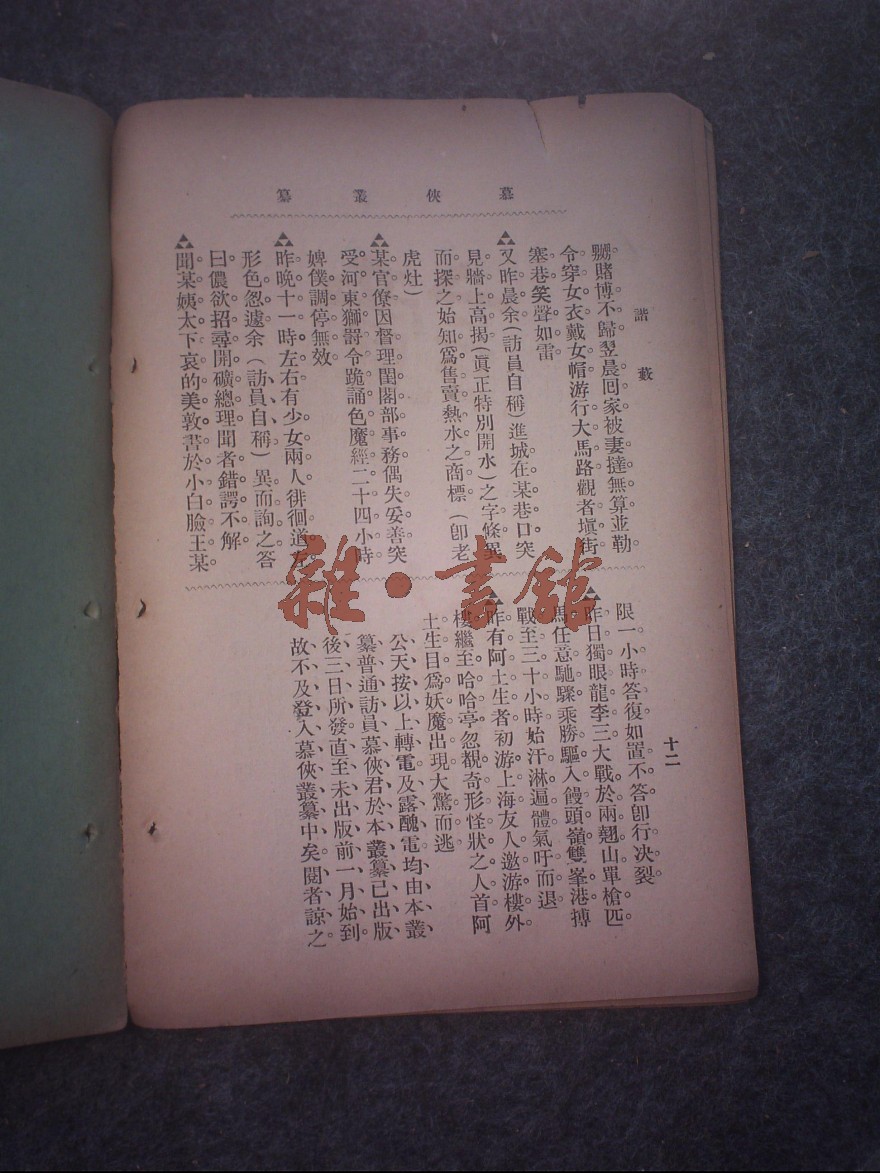 慕俠叢纂
諧藪
十二
嬲賭博不歸翌晨回家被妻撻無算並勒
令穿女衣戴女帽游行大馬路觀者塡街
塞巷笑聲如雷
又昨晨余(訪員自稱)進城在某巷口突
見牆上高揭(眞正特別開水)之字條異
而探之始知爲售賣熱水之商標(卽老
虎灶)
某官僚因督理閨閣部事務偶失妥善突
受河東獅爵令跪誦色魔經二十四小時
婢僕調停無效
昨晚十一時左右有少女兩人徘徊道左
形色怱遽余(訪員自稱)異而詢之答
曰儂欲招尋開礦總理聞者錯諤不解
聞某姨太下哀的美敦書於小白臉王某
限一小時答復如置不答卽行决裂
昨日獨眼龍李三大戰於兩翹山單槍匹
馬任意馳驟乘勝驅入饅頭嶺雙峯港搏
戰至三十小時始汗淋遍體氣吁而退
昨有阿土生者初游上海友人邀游樓外
樓繼至哈哈亭忽覩奇形怪狀之人首阿
土生目爲妖魔出現大驚而逃
公天按以上轉電及露醜電均由本叢
纂普通訪員慕俠君於本叢纂已出版
後三日所發直至未出版前一月始到
故不及登入慕俠叢纂中矣閱者諒之
雜·書館